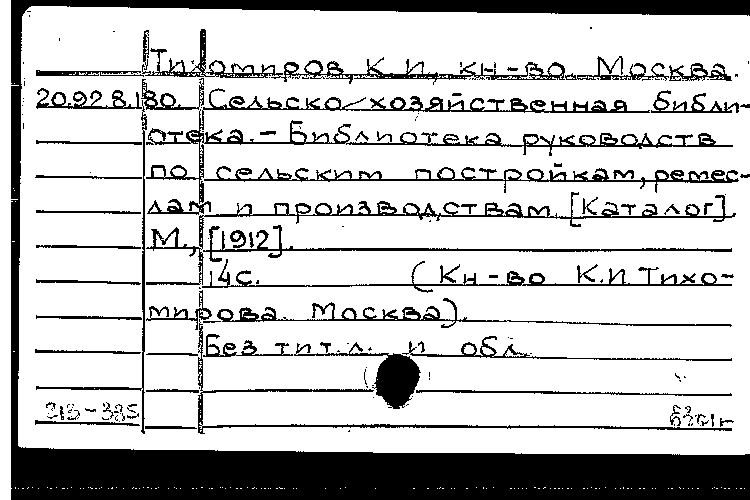 Тихомиров, К.И., кн-во. Москва.
20.92.8.180. Сельско-хозяйственная библи-
отека. - Библиотека руководств
по сельским постройкам, ремес-
лам и производствам. [Каталог].
М., [1912].
14с. (Кн-во К.И. Тихо-
мирова. Москва).
Без тит.л. и обл.
213-385